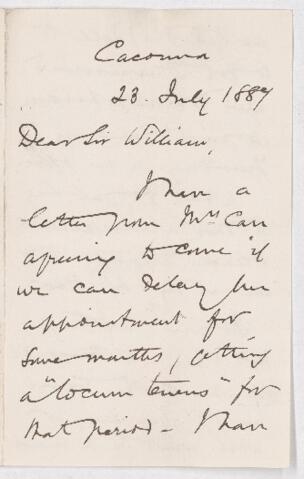 Cacouna
23. July 1887
Dear Sir William,
I have a
letter from Mrs Carr
agreeing to come if
we can delay her
appointment for
some months, getting
a "locum tenens" for
that period - I have